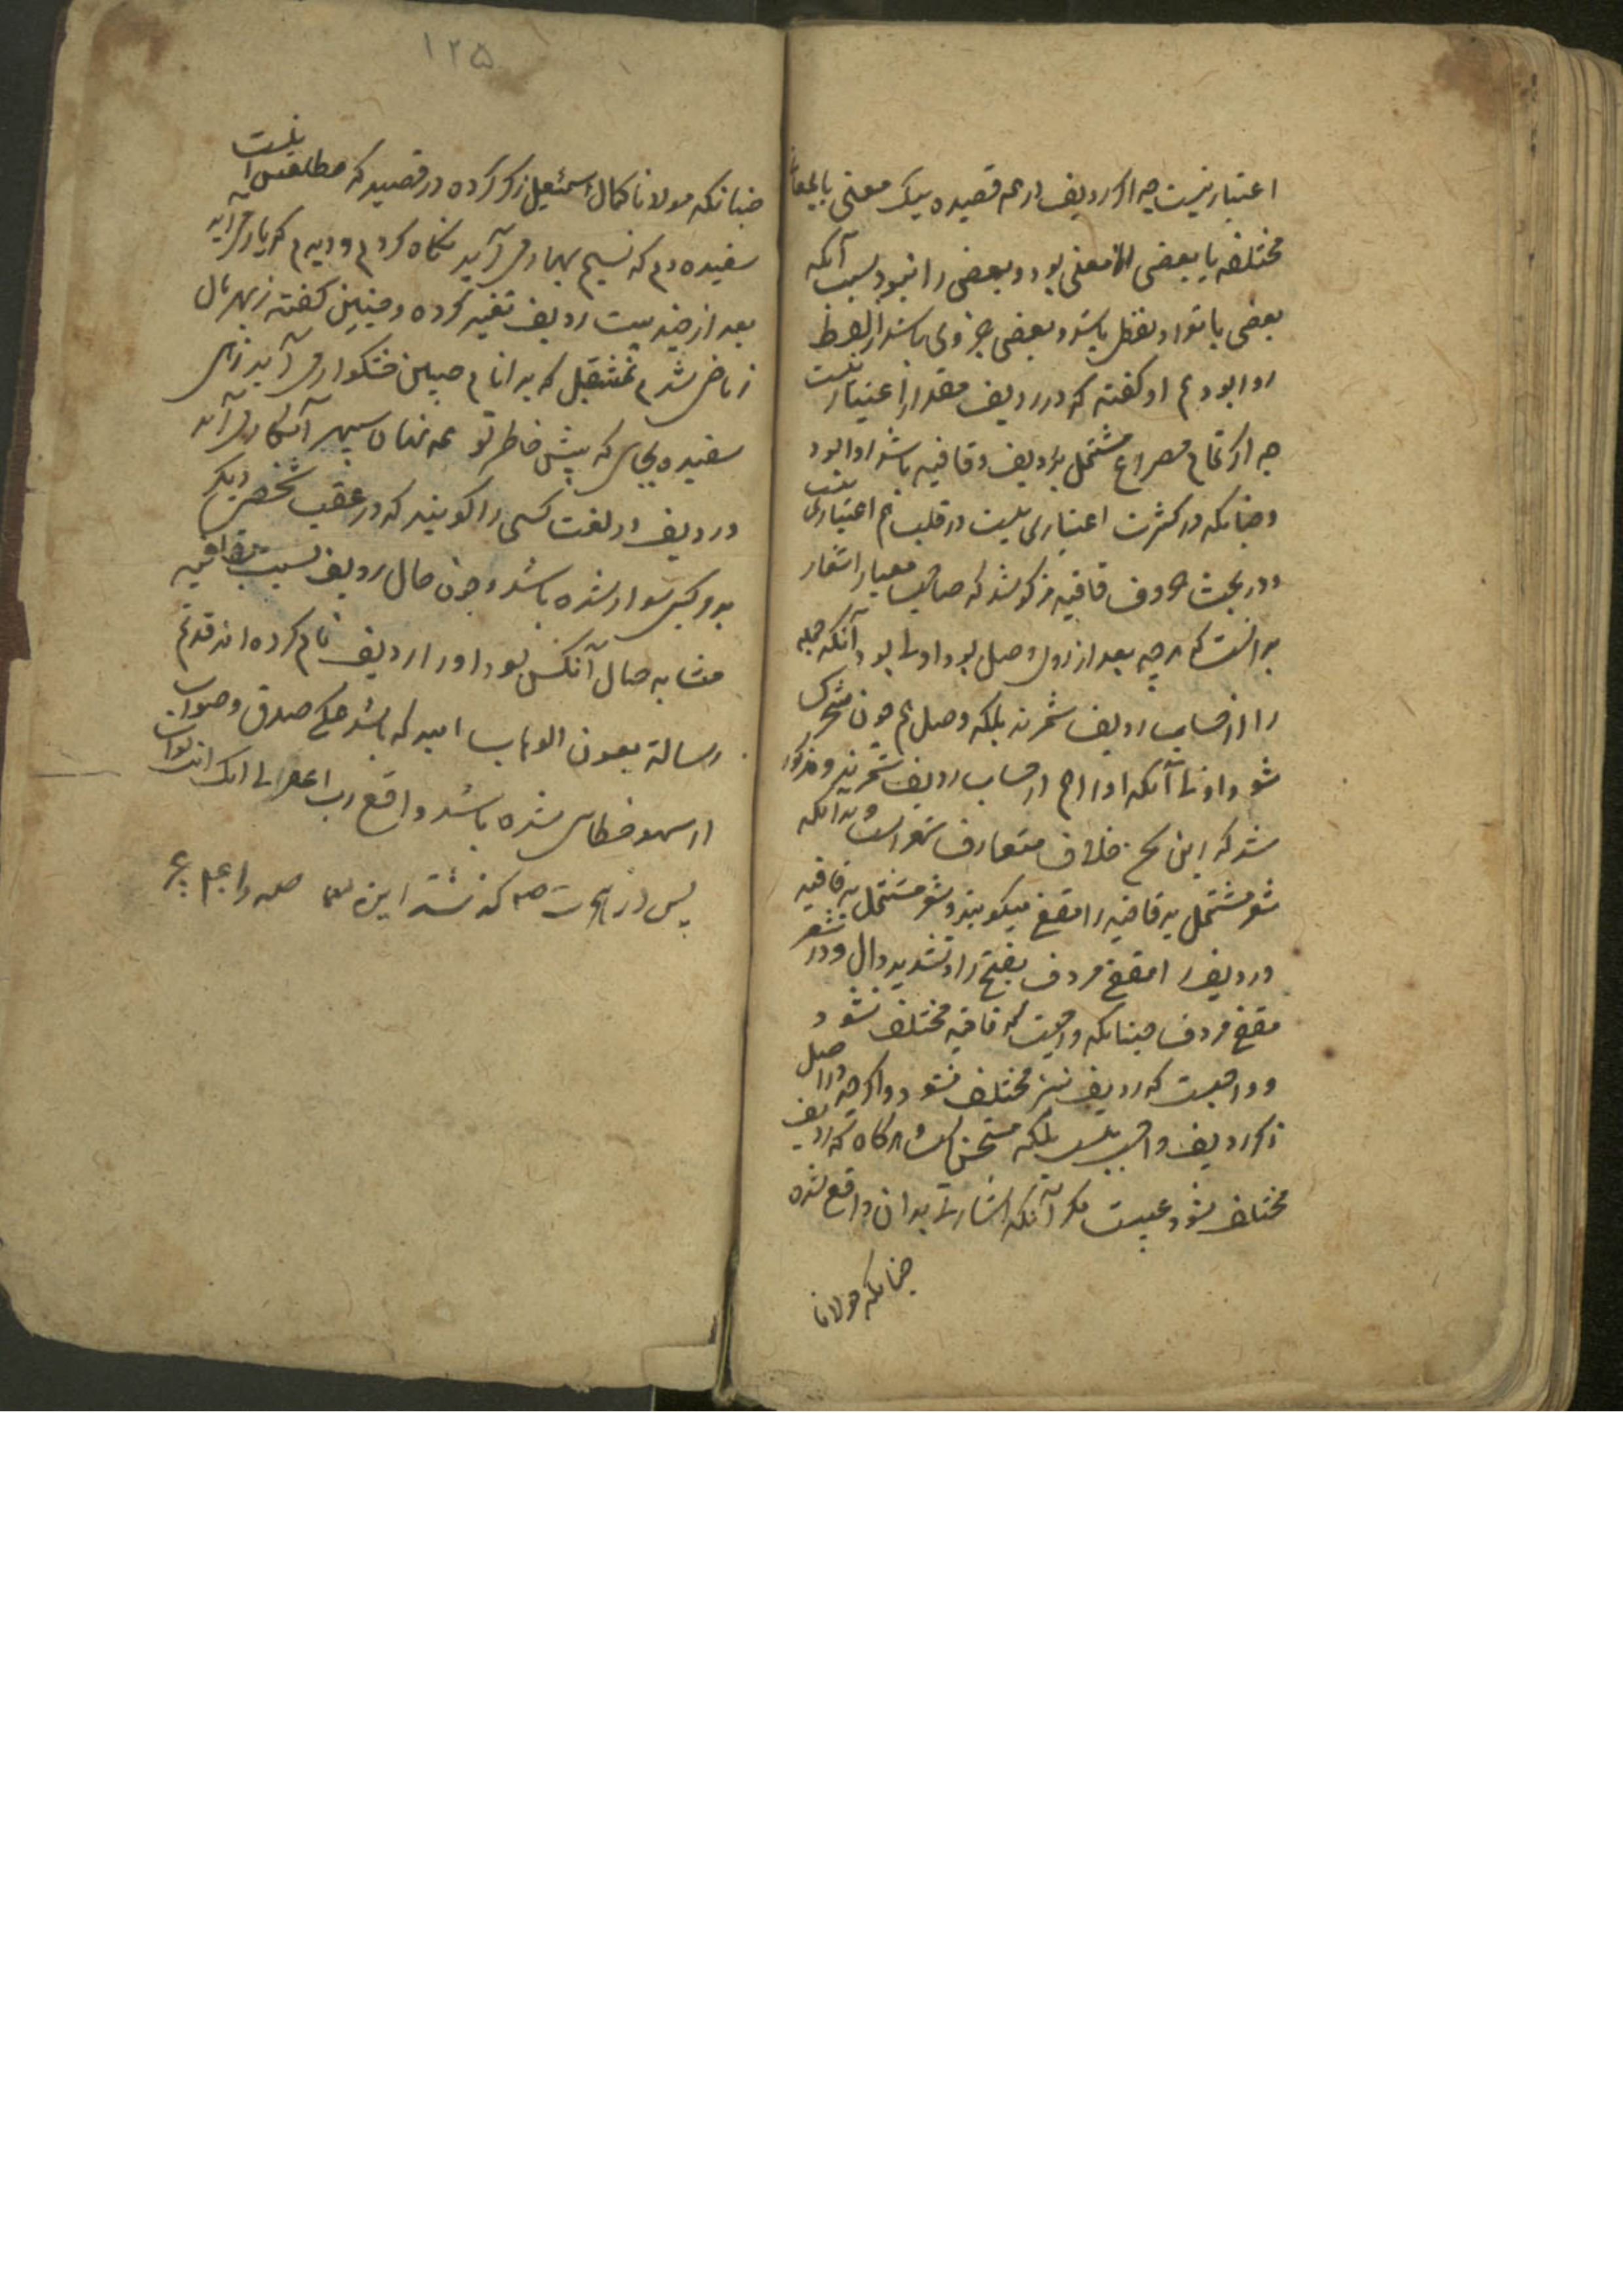 اعتبار نیست چه اگر ردیف در همه قصیده بیک معنی یا بمعانی
مختلفه یا بعضی را معنی بود و بعضی را نبود بسبب آنکه
بعضی بانفراد لفظی باشد و بعضی جزوی باشد از لفظ
روا بود و هم او گفته که در ردیف مقدار را اعتبار نیست
چه اگر تمام مصراع مشتمل بر ردیف و قافیه باشد روا بود
و چنانکه در کثرت اعتباری نیست در قلت هم اعتباری نیست
و در بحث حروف قافیه مذکور شد که صاحب معیار اشعار
بر آنست که هرچه بعد از روی و وصل بود اولی بود آنکه جمله
را از حساب ردیف شمرند بلکه وصل هم چون متحرک
شود اولی آنکه او را هم از حساب ردیف شمرند و مذکور
شد که این خلاف متعارف شعراست و بدانکه
شعر مشتمل بر قافیه را مقفی میگویند و شعر مشتمل بر قافیه
و ردیف را مقفی مردف بفتح را و تشدید دال و در شعر
مقفی مردف چنانکه واجبست که قافیه مختلف نشود
و واجبست که ردیف نیز مختلف نشود و اگرچه در اصل
ذکر ردیف واجب نیست بلکه مستحسن است و هرگاه که ردیف
مختلف شود عیبست مگر آنکه اشارتی بدان واقع شده
چنانکه مولانا
۱۲۵
چنانکه مولانا کمال اسمعیل ذکر کرده در قصیده که مطلعش اینست
سفیده دم که نسیم بهار می آید نگاه کردم و دیدم که یار می آید
بعد از چند بیت ردیف تغییر کرده و چنین گفته ز بهر مال
ز ماضی شدم بمستقبل که بر انام چنین خشکوار می آید زهی
سفیده بجایی که پیش خاطر تو همه نهان سپهر آشکار می آید
و ردیف در لغت کسی را گویند که در عقب شخص دیگر
بر مرکبی سوار شده باشد و چون حال ردیف نسبت بقافیه
مشابه حال آنکس بود او را ردیف نام کرده اند قد تم
رسالة بعون الوهاب امید که باشد حکم صدق و صواب
از سهو خطای شده باشد واقع رب اغفر لی انک انت تواب